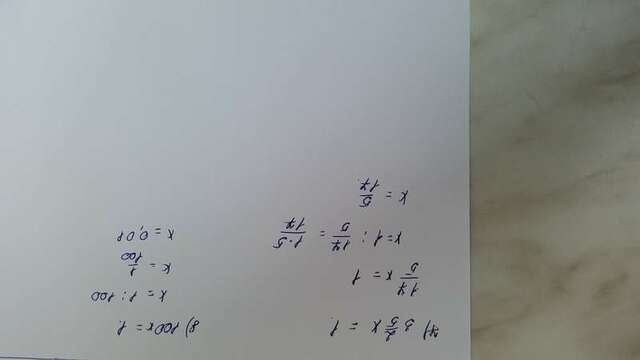 7) 3 2/5 x = 1.
17/5 x = 1
x = 1 : 17/5 = 1·5/17
x = 5/17.
8) 100x = 1.
x = 1 : 100
x = 1/100
x = 0,01